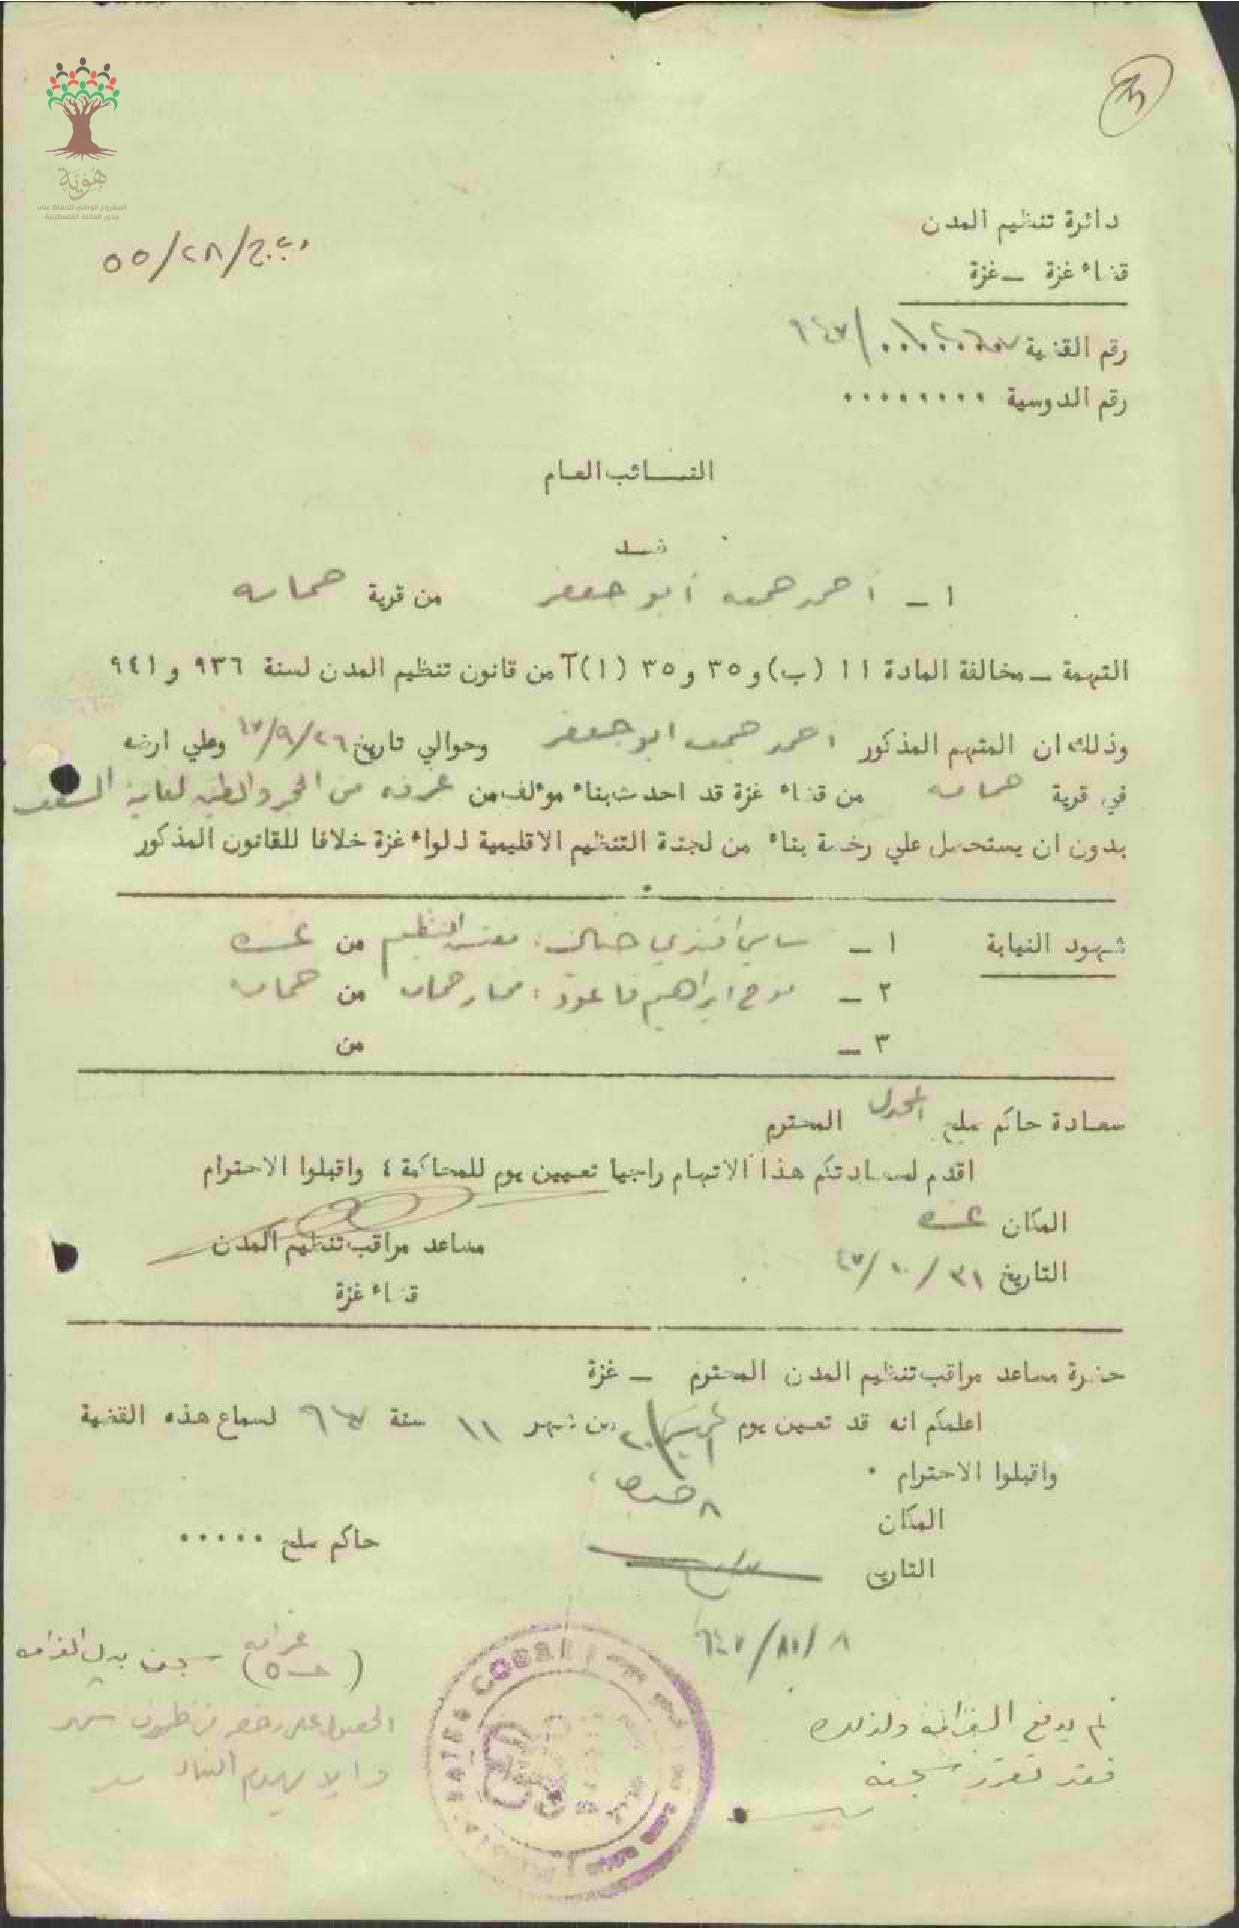 هوية
المشروع الوطني للحفاظ على
جذور العائلة الفلسطينية
٥٥/٢٨/
دائرة تنظيم المدن
قضاء غزة ــ غزة
رقم القضية /٩٤٧
رقم الدوسية ٠٠٠٠٠٠٠٠
النائب العام
ضد
١ ــ احمد جمعه ابو جعفر من قرية حمامه
التهمة ــ مخالفة المادة ١١ (ب) و ٣٥ و ٣٥ (١) آ من قانون تنظيم المدن لسنة ٩٣٦ و ٩٤١
وذلك ان المتهم المذكور احمد جمعه ابو جعفر وحوالي تاريخ ٤٧/٩/٢٦ وعلي ارضه
في قرية حمامه من قضاء غزة قد احدث بناء مؤلف من غرفه من الحجر والطين لغاية السقف
بدون ان يستحصل علي رخصة بناء من لجنة التنظيم الاقليمية للواء غزة خلافا للقانون المذكور
شهود النيابة ١ ــ سامي افندي : مفتش التنظيم من غزه
٢ ــ ابراهيم قاعود : مختار حمامه من حمامه
٣ ــ من
سعادة حاكم صلح المجدل المحترم
اقدم لسعادتكم هذا الاتهام راجيا تعيين يوم للمحاكمة ٤ واقبلوا الاحترام
المكان غزه
مساعد مراقب تنظيم المدن
التاريخ ٤٧/١٠/٣١
قضاء غزة
حضرة مساعد مراقب تنظيم المدن المحترم ــ غزة
اعلمكم انه قد تعين يوم الخميس ٢٠ من شهر ١١ سنة ٩٤٧ لسماع هذه القضية
واقبلوا الاحترام ٠
٨ صباحا
المكان
حاكم صلح ٠٠٠٠٠
التاريخ
٨/١١/٩٤٧
لم يدفع الغرامة ولذلك
فقد تقرر سجنه
غرامه
سجن بدل الغرامه
الحصول على رخصه في ظرف شهر
والا يهدم البناء